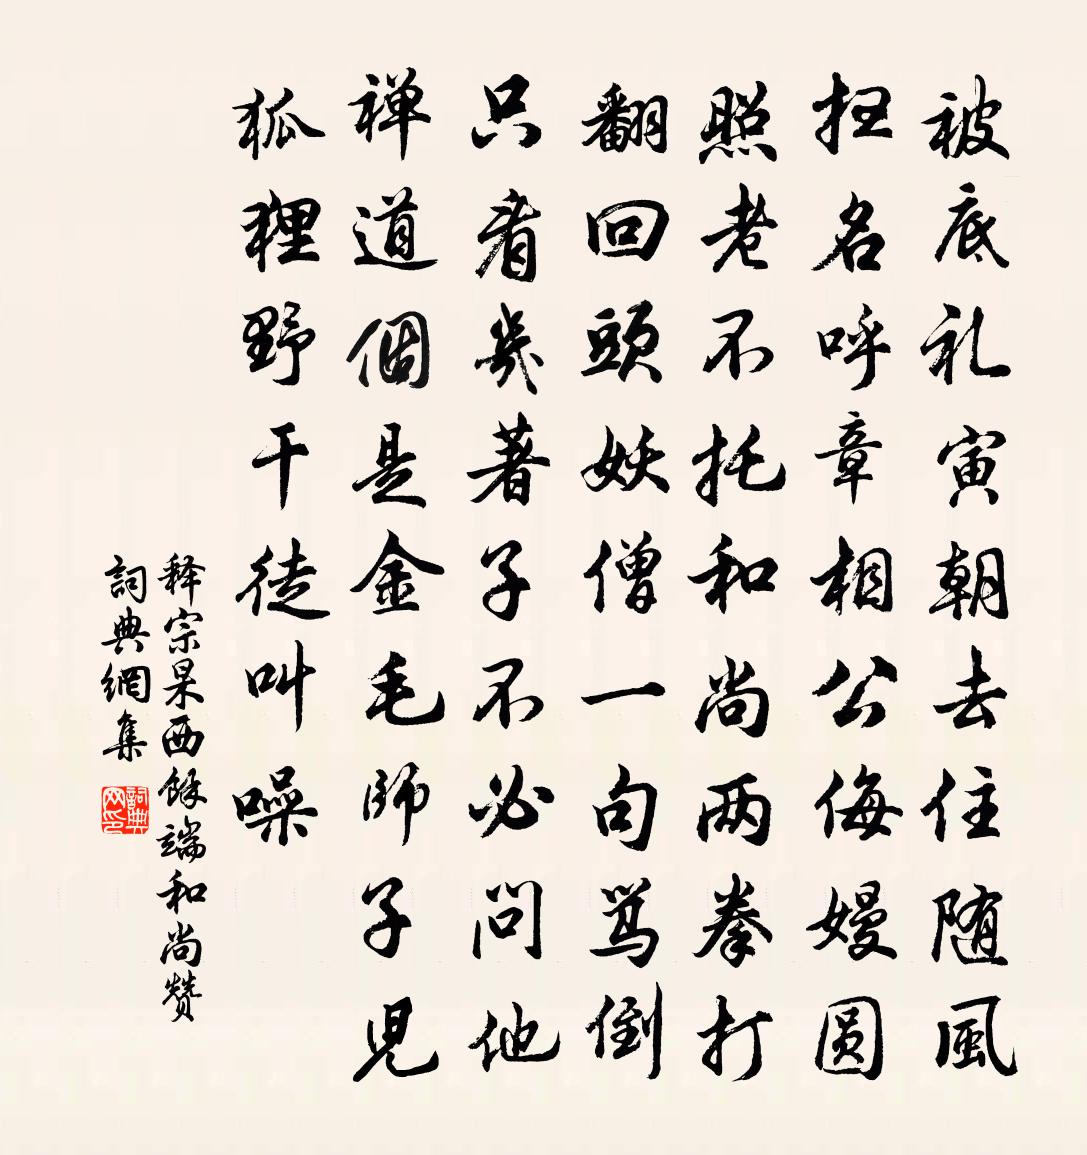 被底礼寅朝去住随風
抂名呼章相公侮嫚圆
照老不托和尚两拳打
翻回頭妖僧一句骂倒
只看幾著子不必问他
禅道個是金毛师子児
狐狸野干徒叫噪
释宗杲西馀端和尚赞
詞典網集
詞典网印